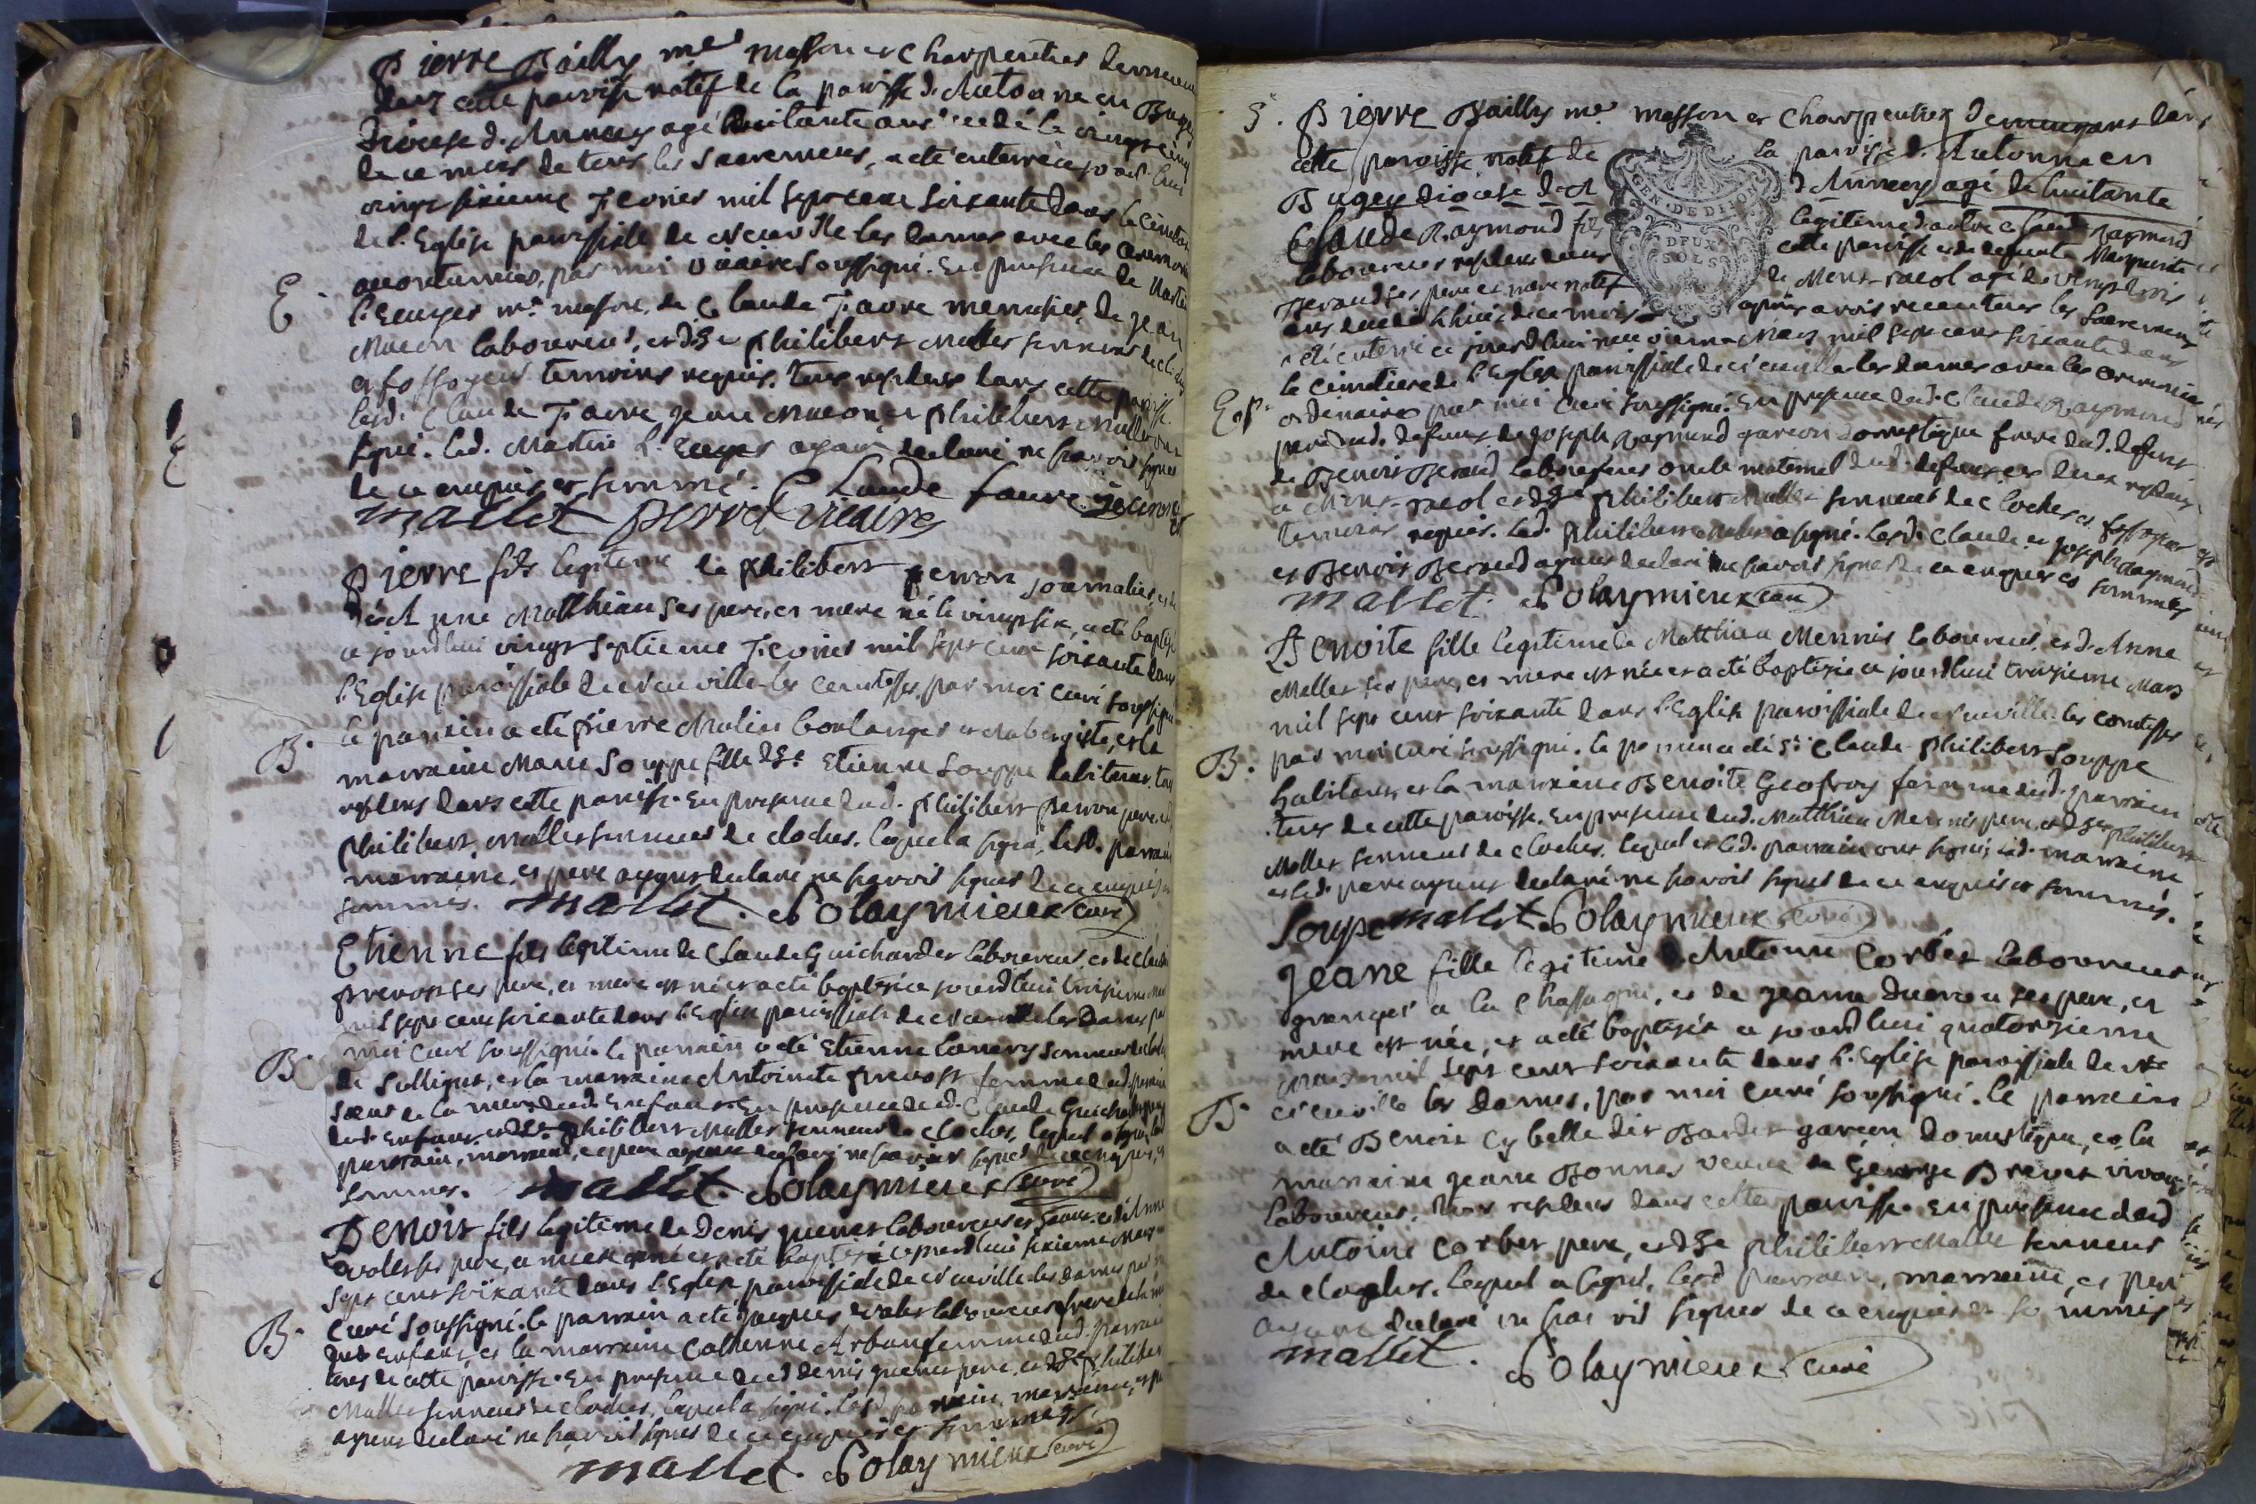 Pierre Bailly me masson et charpentier demeurant
dans cette paroisse natif de la paroisse d. Autonne en Bugey
Diocese d. Annecy agé de huitante ans decedé le vingt cinq
de ce mois de tous les Sacremens, a eté enterré ce jourd'hui
vingt sixieme Fevrier mil sept cent soixante dans le cimetiere
de l'Eglise paroissiale de Neuville les dames avec les ceremonies
accoutumées, par moi vicaire soussigné. En presence de Martin
E. l'Ecuyer me masson, de Claude Favre menusier, de jean
Macon laboureur, et d. Se philibert Mallet sonneur de cloches
et fossoyeur temoins requis, tous residens dans cette paroisse
lesd. Claude Favre jean Macon, et philibert Mallet ont
signé. led. Martin l'Ecuyer ayant declaré ne sçavoir signer
de ce enquis et sommé. Claude faure jean
mallet perret vicaire
Pierre fils legitime de philibert perron journalier, et
d'Anne Matthieu ses pere, et mere né le vingt six, a eté baptisé
ce jourd'hui vingt septieme Fevrier mil sept cent soixante dans
l'Eglise paroissiale de Neuville les comtesses, par moi curé soussigné
B. le parrain a eté pierre Mulin boulanger et aubergiste, et la
marraine Marie Souppe fille d. Sr Etienne Souppe habitant tous
residens dans cette paroisse. En presence dud. philibert perron pere, et
philibert Mallet sonneur de cloches. lequel a signé, lesd. parrain
marraine, et pere ayant declaré ne sçavoir signer de ce enquis et
sommés. mallet. Solaymieux curé
Etienne fils legitime de Claude Guichardet laboureur, et de Claudine
prevost ses pere, et mere est né et a eté baptisé ce jourd'hui troisieme Mars
mil sept cent soixante dans l'Eglise paroissiale de Neuville les Dames par
B. moi curé soussigné. le parrain a eté Etienne Canary sonneur de cloches
de Sullignat, et la marraine Antoinette prevost femme dud. parrain
sœur de la mere dud. Enfant. En presence dud. Claude Guichardet pere
dud. Enfant, et d. Se philibert Mallet sonneur de cloches, lequel a signé, lesd.
parrain, marraine, et pere ayant declaré ne sçavoir signer de ce enquis, et
sommés. mallet. Solaymieux curé
Benoit fils legitime de Denis quenet laboureur et d'Anne
ses pere, et mere est né et a eté baptisé ce jourd'hui sixieme Mars mil
sept cent soixante dans l'Eglise paroissiale de Neuville les dames par moi
B. curé soussigné. le parrain a eté jaques laboureur frere de la mere
dud. enfant, et la marraine Catherine Arban femme dud. parrain
tous de cette paroisse. En presence dud. denis quenet pere, et d. Se philibert
Mallet sonneur de cloches, lequel a signé. lesd. parrain, marraine, et pere
ayant declaré ne sçavoir signer de ce enquis et sommés.
mallet. Solaymieux curé
§. Pierre Bailly me masson et charpentier demeurant dans
cette paroisse natif de la paroisse d. Autonne en
Bugey diocese d. A d'Annecy agé de huitante
Claude Raymond fils legitime d'autre Claude Raymond
laboureur residens dans cette paroisse et de defunte Marguerite
Beraud ses pere et mere natif de Mont-racol agé de vingt trois
ans decedé hier de ce mois après avoir recu tous les Sacremens
a eté enterré ce jourd'hui neuvieme Mars mil sept cent soixante dans
le cimetiere de l'Eglise paroissiale de Neuville les dames avec les ceremonies
E.p. ordinaires par moi curé soussigné. En presence dud. Claude Raymond
pere dud. defunt, de joseph Raymond garcon domestique frere dud. defunt
de Benoit Beraud laboureur oncle maternel dud. defunt et deux residens
a Mont-racol et d. Se philibert Mallet sonneur de cloches et fossoyeur
temoins requis. led. philibert Mallet a signé. lesd. Claude et joseph Raymond
et Benoit Beraud ayant declaré ne sçavoir signer de ce enquis et sommés
mallet. Solaymieux curé
Benoite fille legitime de Matthieu Mennis laboureur, et d. Anne
Mallet ses pere, et mere est née et a eté baptisée ce jourd'hui treizieme Mars
mil sept cent soixante dans l'Eglise paroissiale de Neuville les comtesses
B. par moi curé soussigné. le parrain a eté Sr Claude philibert Souppe
habitant, et la marraine Benoite Geofroy femme dud. parrain
tous de cette paroisse. En presence dud. Matthieu Mennis pere, et d. Se philibert
Mallet sonneur de cloches. lequel et led. parrain ont signé, lad. marraine
et led. pere ayant declaré ne sçavoir signer de ce enquis et sommés.
Soupe mallet. Solaymieux curé
Jeane fille legitime d. Antoine Corbet laboureur
granger a la Chassagne, et de jeanne ducrou ses pere, et
mere est née, et a eté baptisée ce jourd'hui quatorzieme
Mars mil sept cent soixante dans l'Eglise paroissiale de
B. Neuville les dames, par moi curé soussigné. le parrain
a eté Benoit Cybelle dit Bardet garçon domestique, et la
marraine jeane Bonnas veuve de George Brevet vivant
laboureur. tous residens dans cette paroisse. En presence dud.
Antoine Corbet pere, et d. Se philibert Mallet sonneur
de cloches. lequel a signé, lesd. parrain, marraine, et pere
ayant declaré ne sçavoir signer de ce enquis et sommés
mallet. Solaymieux curé
GEN. DE DIJON
DEUX
SOLS